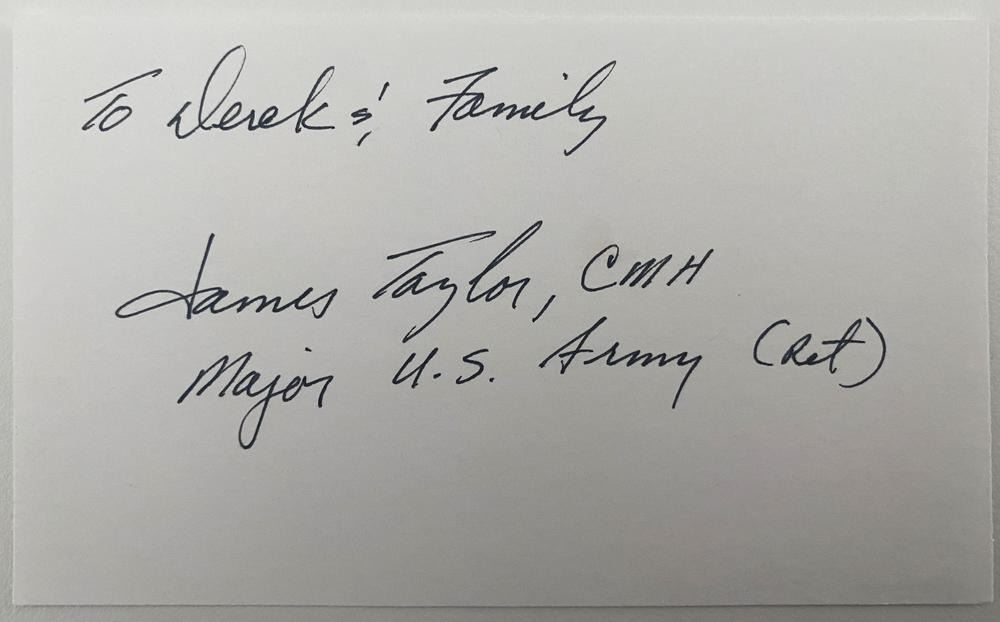 To Derek & Family
James Taylor, CMH
Major U.S. Army (Ret)